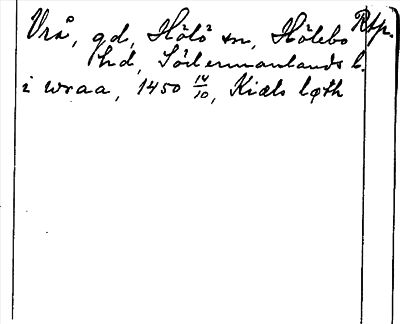 Vrå, gd, Hölö sn, Hölebo Rtp.
hd, Södermanlands l.
i wraa, 1450 14/10, Kiæls loth